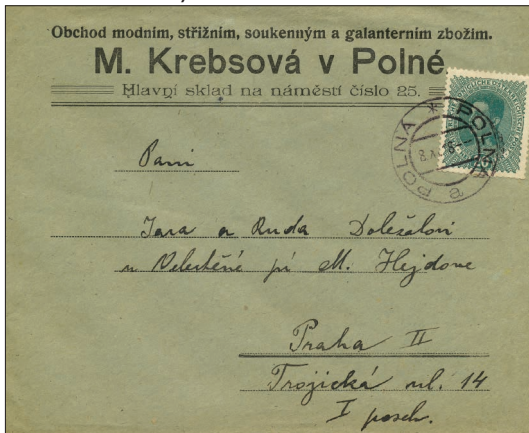 Obchod modním, střižním, soukenným a galanterním zbožím.
M. Krebsová v Polné
Hlavní sklad na náměstí číslo 25.
POLNÁ * POLNA
8 a
Paní
Jara a Ruda Doležalovi
u Velectěné pí M. Hejdove
Praha II
Trojická ul. 14
I posch.